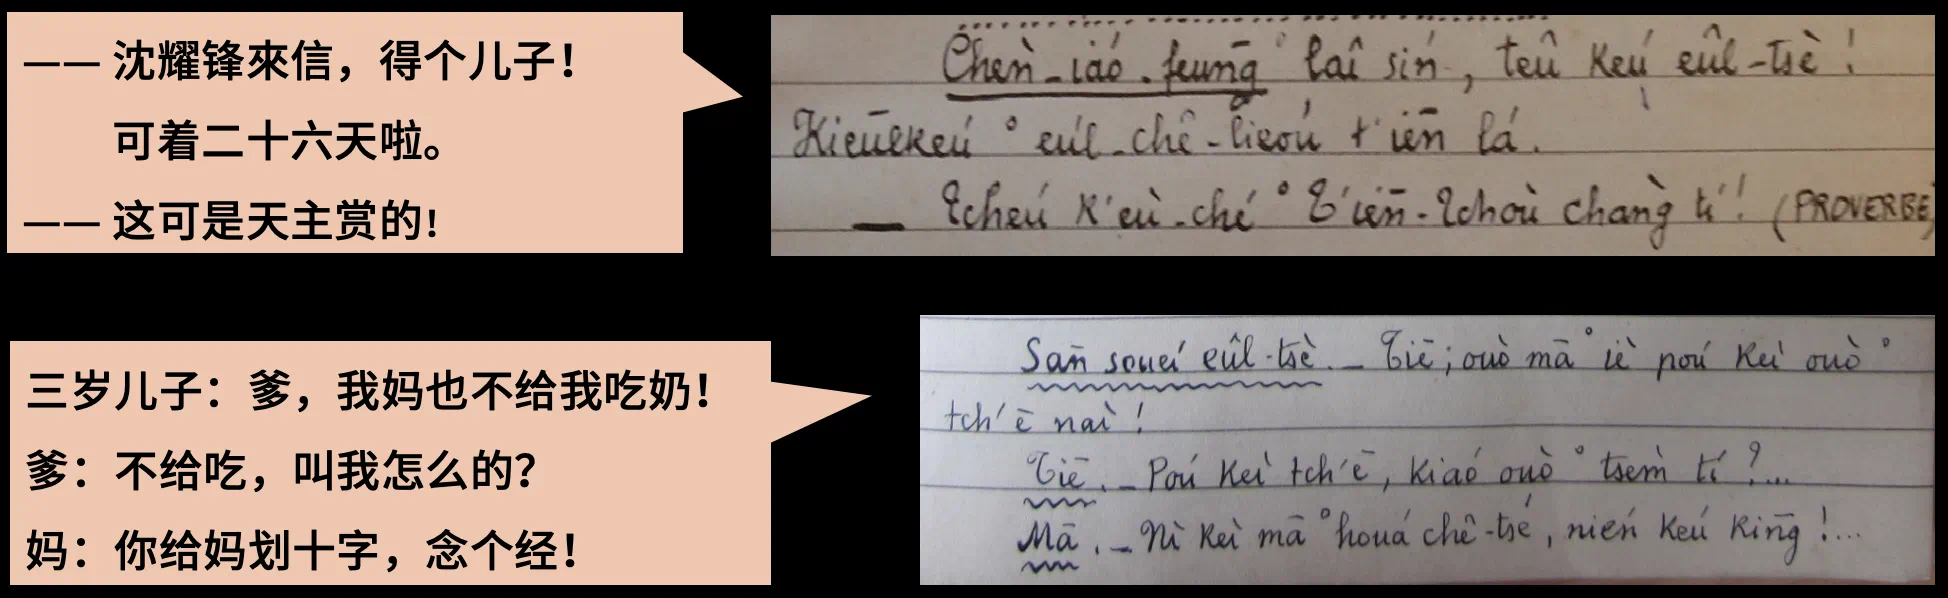 —— 沈耀锋來信，得个儿子！
可着二十六天啦。
—— 这可是天主赏的！
Chèn-iáo-feunḡ ° laî sín, teû Keú eûl-tsè !
Kieūekeú ° eúl-chê-lieóu t'iēn lá.
— Tcheú K'eù-ché ° T'iēn-Tchoù chang̀ tí ! (PROVERBE)
三岁儿子：爹，我妈也不给我吃奶！
爹：不给吃，叫我怎么的？
妈：你给妈划十字，念个经！
Sān soueí eûl-tsè. _ Tiē ; ouò mā ° iè poú Keì ouò °
tch'ē naì !
Tiē. _ Poú Keì tch'ē, Kiaó ouò ° tsem̀ tí ?...
Mā. _ Nì Keì mā ° houá chê-tsé, nień Keú Kinḡ !...